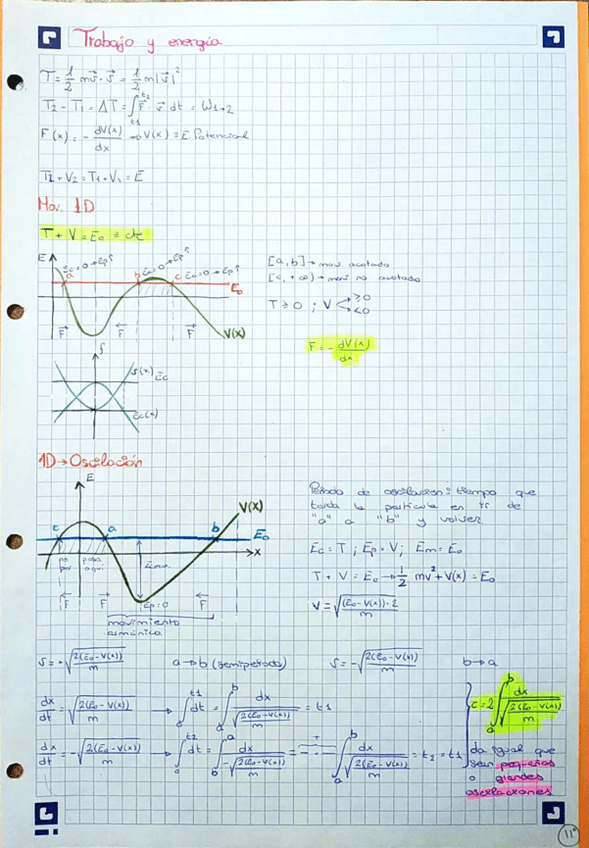 Trabajo y energía
T = 1/2 m v⃗ · v⃗ = 1/2 m|v⃗|²
T₂ - T₁ = ΔT = ∫_{t1}^{t2} F⃗ · v⃗ dt = W₁→₂
F(x) = - dV(x)/dx → V(x) = E. Potencial
T₂ + V₂ = T₁ + V₁ = E
Mov. 1D
T + V = E₀ ≡ cte
E
Ec=0→Ep↑ Ec=0→Ep↑ Ec=0→Ep↑
a b c E₀
F⃗ F⃗ F⃗ V(x)
[a,b] → mov. acotado
[c, +∞) → mov. no acotado
T ≥ 0 ; V ≥0
<0
F = - dV(x)/dx
f
Ec
Ec(x)
1D → Oscilación
E
V(x)
c a b E₀
x
no por
pasa aquí
F⃗ F⃗ Ep=0 F⃗
movimiento
armónico
Periodo de oscilacion: tiempo que
tarda la partícula en ir de
"a" a "b" y volver
Ec = T ; Ep = V ; Em = E₀
T + V = E₀ → 1/2 mv² + V(x) = E₀
V = √((E₀ - V(x))·2/m)
v = +√(2(E₀ - V(x))/m) a→b (semiperiodo) v = -√(2(E₀ - V(x))/m) b→a
dx/dt = √(2(E₀ - V(x))/m) → ∫_0^{t1} dt = ∫_a^b dx/√(2(E₀ - V(x))/m) = t1
dx/dt = -√(2(E₀ - V(x))/m) → ∫_0^{t2} dt = ∫_b^a dx/-√(2(E₀ - V(x))/m) = ∫_a^b dx/√(2(E₀ - V(x))/m) = t₂ = t1
τ = 2∫_a^b dx/√(2(E₀ - V(x))/m)
da igual que
sean pequeñas
o grandes
oscilaciones
11